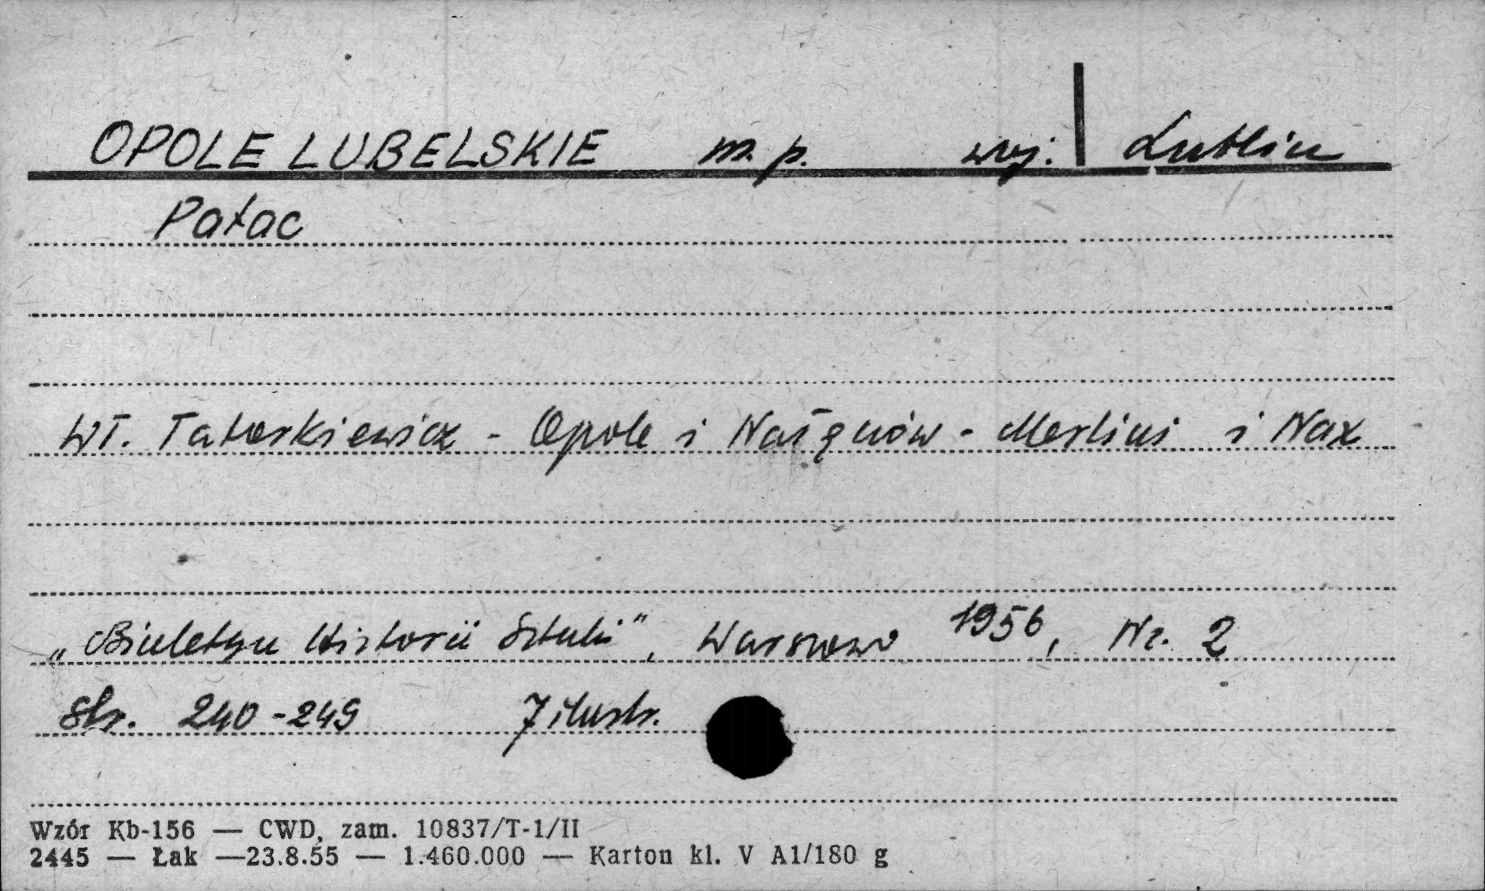 OPOLE LUBELSKIE m. p. woj. Lublin
Pałac
Wł. Tatarkiewicz - Opole i Nałęczów - Merlini i Nax
„Biuletyn Historii Sztuki”, Warszawa 1956, Nr. 2
Str. 240-249 7 ilustr.
Wzór Kb-156 — CWD, zam. 10837/T-1/II
2445 — Łak —23.8.55 — 1.460.000 — Karton kl. V A1/180 g